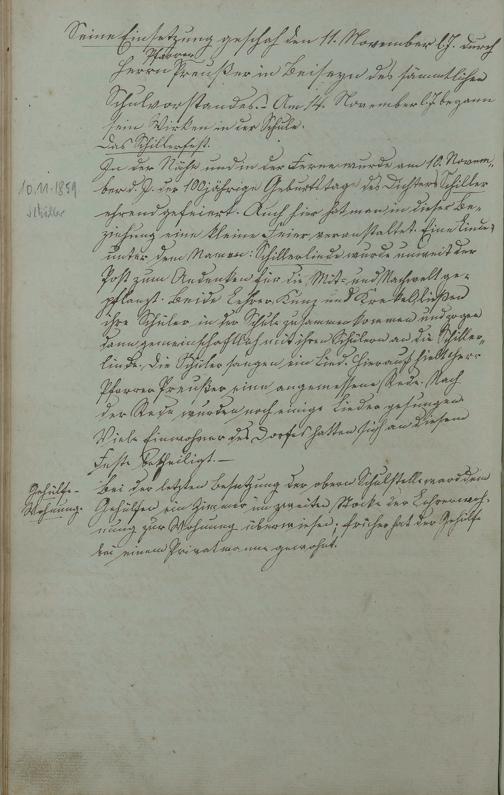 Seine Einsetzung geschah den 11. November l. J. durch
Pfarrer
Herrn Preußer in Beiseyn des sämmtlichen
Schulvorstandes. – Am 14. November l. J. begann
sein Wirken in der Schule.
Das Schillerfest.
In der Nähe und in der Ferne wurde am 10. Novem-
10.11.1859
ber d. J. der 100jährige Geburtstag des Dichters Schiller
Schiller
ehrend gefeiert. Auch hier hat man in dieser Be-
ziehung eine kleine Feier veranstaltet. Eine Linde
unter dem Namen: Schillerlinde wurde unweit der
Post zum Andenken für die Mit- und Nachwelt ge-
pflanzt. Beide Lehrer, Kunz und ließen
ihre Schüler in der Schule zusammenkommen und zogen
dann gemeinschaftlich mit ihren Schülern an die Schiller-
linde. Die Schüler sangen ein Lied. Hierauf hielt Herr
Pfarrer Preußer eine angemessene Rede. Nach
der Rede wurden noch einige Lieder gesungen
Viele Einwohner des Dorfes hatten sich an diesem
Feste betheiligt. –
Gehülfe-
Bei der letzten Besetzung der obern Schulstelle ward dem
Wohnung.
Gehülfen ein Zimmer im zweiten Stocke der Lehrerwoh-
nung zur Wohnung überwiesen; früher hat der Gehülfe
bei einem Privatmanne gewohnt.